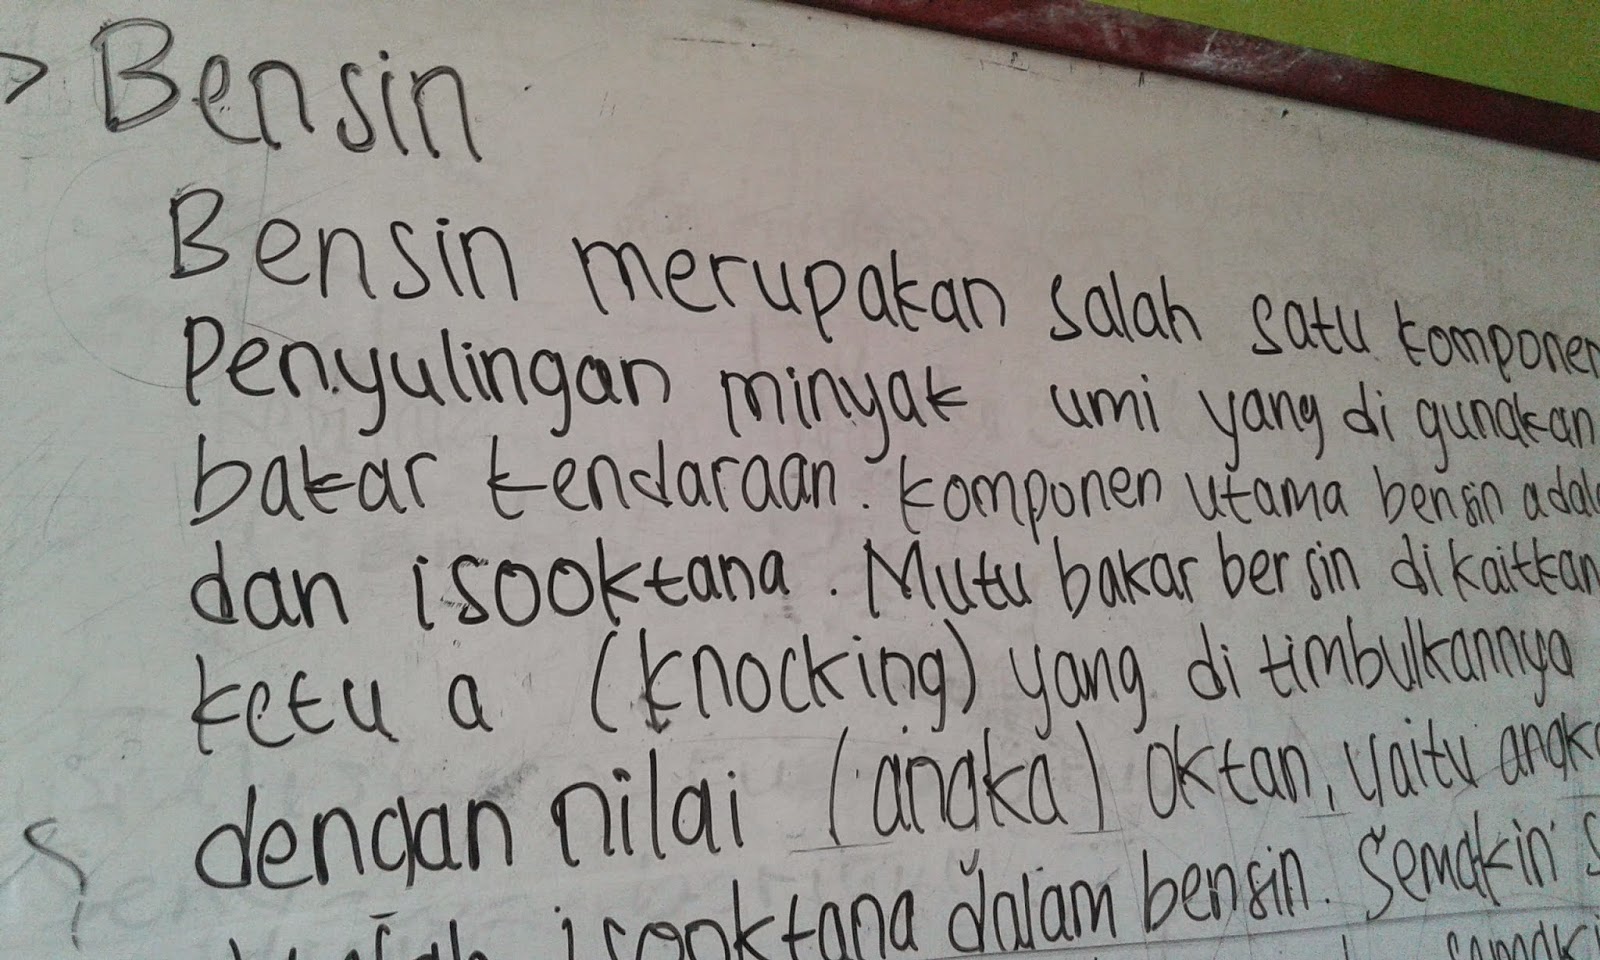 > Bensin
Bensin merupakan salah satu komponen
Penyulingan minyak umi yang di gunakan
bakar kendaraan. komponen utama bensin adal
dan isooktana. Mutu bakar bersin di kaitkan
ketu a (knocking) yang di timbulkannya
dengan nilai (angka) oktan, yaitu angk
isooktana dalam bensin. Semakin s